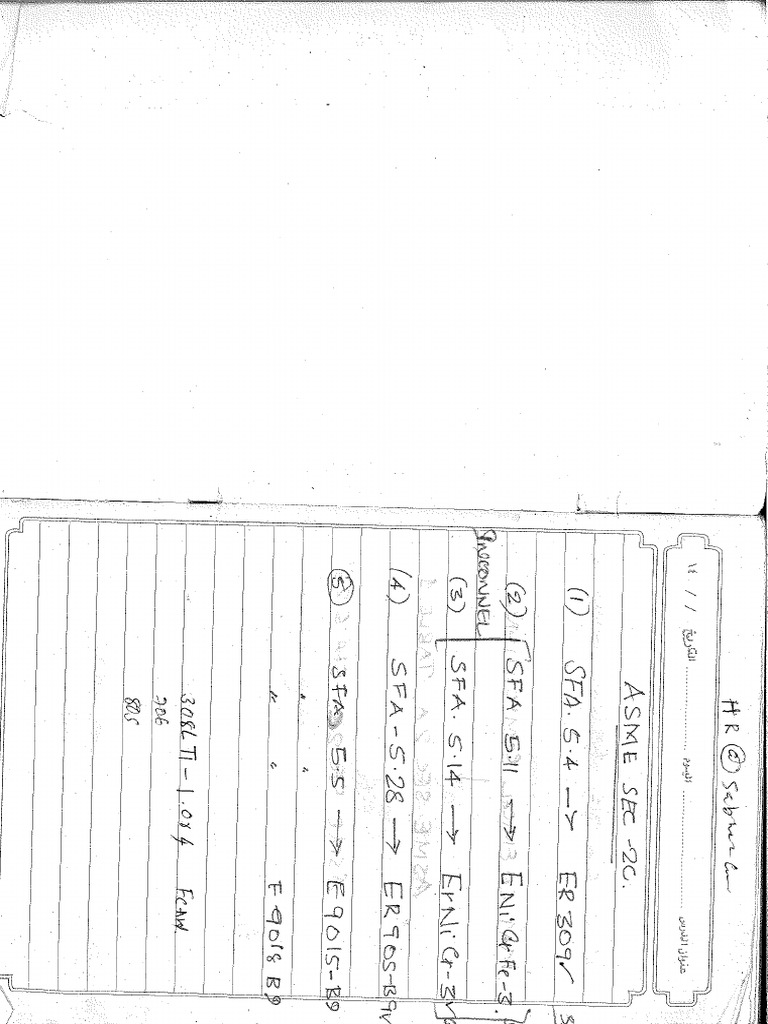 HR @
١٤ / / التاريخ ........ اليوم ........ عنوان الدرس
ASME SEC - 2C.
(1) SFA. 5.4 → ER 309
(2) SFA 5.11 → ENiCrFe-3.
Inconnel
(3) SFA. 5.14 → ErNiCr-3
(4) SFA - 5.28 → ER90S-B9
(5) SFA 5.5 → E9015-B9
" " E9018 B9
308LT1-1. FCAW
90S
80S